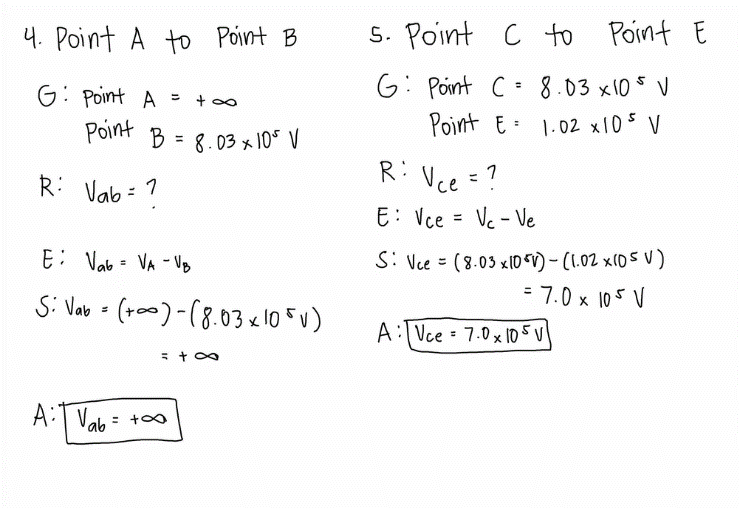 4. Point A to Point B
G: Point A = +∞
Point B = 8.03 x 10⁵ V
R: Vab = ?
E: Vab = VA - VB
S: Vab = (+∞) - (8.03 x 10⁵ V)
= +∞
A: Vab = +∞
5. Point C to Point E
G: Point C = 8.03 x10⁵ V
Point E = 1.02 x10⁵ V
R: Vce = ?
E: Vce = Vc - Ve
S: Vce = (8.03 x10⁵V) - (1.02 x10⁵ V)
= 7.0 x 10⁵ V
A: Vce = 7.0 x 10⁵ V